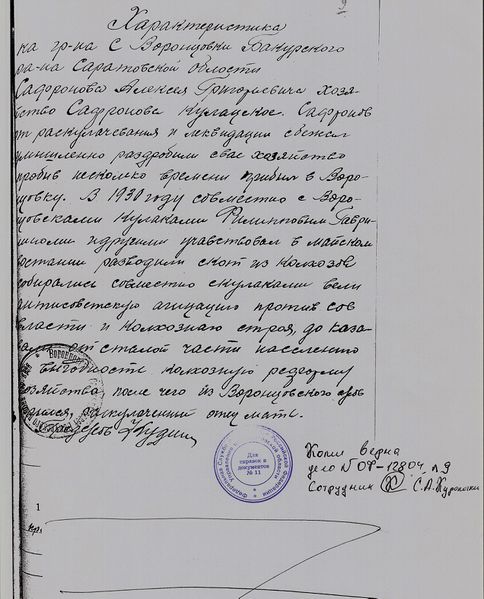 Характеристика
на гр-на С Воронцовки Бакурского
ра-на Саратовской области
Сафронова Алексея Григорьевича хозя
йство Сафронова кулацкое. Сафронов
от раскулачевания и ликвидации сбежал
умышленно раздробили свае хозяйство
пробыв несколько времени прибыл в Ворон
цовку. В 1930 году совместно с Воро
цовскими кулаками Филиповым Гаври
и другими учавствовал в майском
востании разводили скот из колхозов
собирались совместно скулаками вели
антисоветскую агитацию против сов
власти и колхознаго строя, до каза
отсталой части населению
выгодность колхозную
хозяйства после чего из Воронцовского
раскулачении отец мать.
Для
справок и
документов
№ 11
Копия верна
дело № ОФ-12804, л. 9
Сотрудник С.А.
1